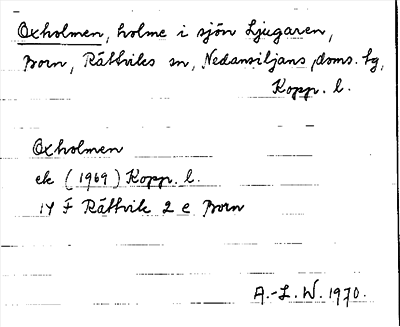 Oxholmen, holme i sjön Ljugaren,
Born, Rättviks sn, Nedansiljans doms. tg,
Kopp. l.
Oxholmen
ek (1969) Kopp. l.
14 F Rättvik 2 e Born
A.-L. W. 1970.